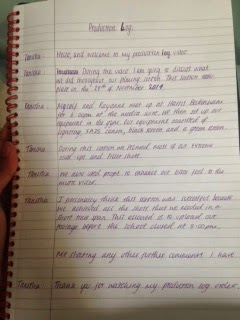 Production Log.
Tanisha: Hello, and welcome to my production log video
Tanisha: During this video I am going to discuss what
we did throughout our filming session. This session took
place on the 28th of November 2014.
Tanisha: Myself and Keyanna met up at Harris Beckenham
for a 2pm at the media suite, we then set up our
equipment in the gym, our equipment consisted of
lighting, 550D camera, black screen and a green screen.
Tanisha: During this session we filmed most of our extreme
close ups and filler shots
Tanisha: We also used props to enhance our video feel to the
music video.
Tanisha: I personally think this session was successful because
we achieved all the shots that we needed in a
short time span. This allowed us to upload our
footage before the school closed at 5:00pm.
Me stating any other further comments I have
Tanisha: Thank you for watching my production log video.